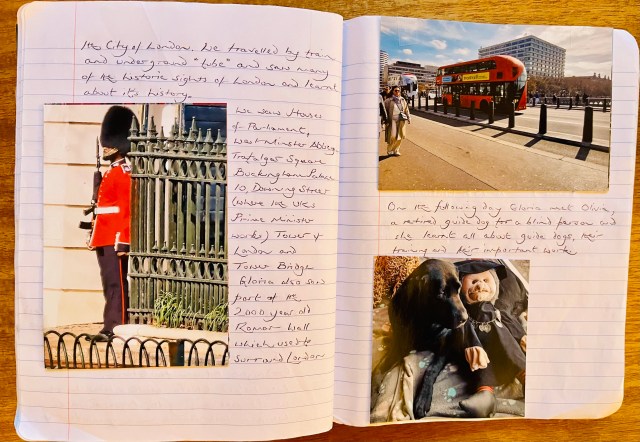 the City of London. We travelled by train
and underground "tube" and saw many
of the historic sights of London and learnt
about it's history.
We saw Houses
of Parliament,
Westminster Abbey,
Trafalgar Square
Buckingham Palace
10, Downing Street
(where the UK's
Prime Minister
works) Tower of
London and
Tower Bridge
Gloria also saw
part of the
2,000 year old
Roman Wall
which used to
Surround London
On the following day Gloria met Olive,
a retired guide dog for a blind person and
she learnt all about guide dogs, their
training and their important work